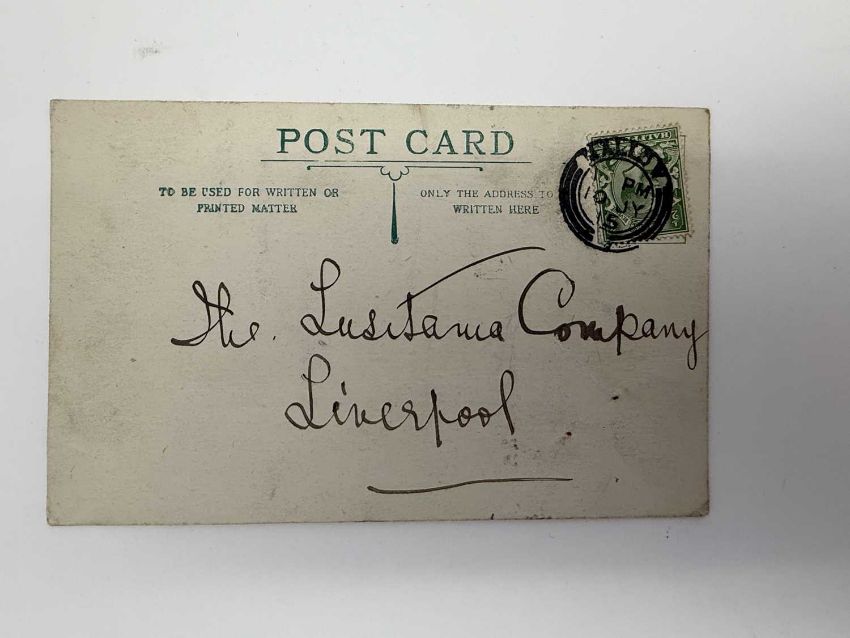 POST CARD
TO BE USED FOR WRITTEN OR
PRINTED MATTER
ONLY THE ADDRESS TO
WRITTEN HERE
PM
The. Lusitania Company
Liverpool